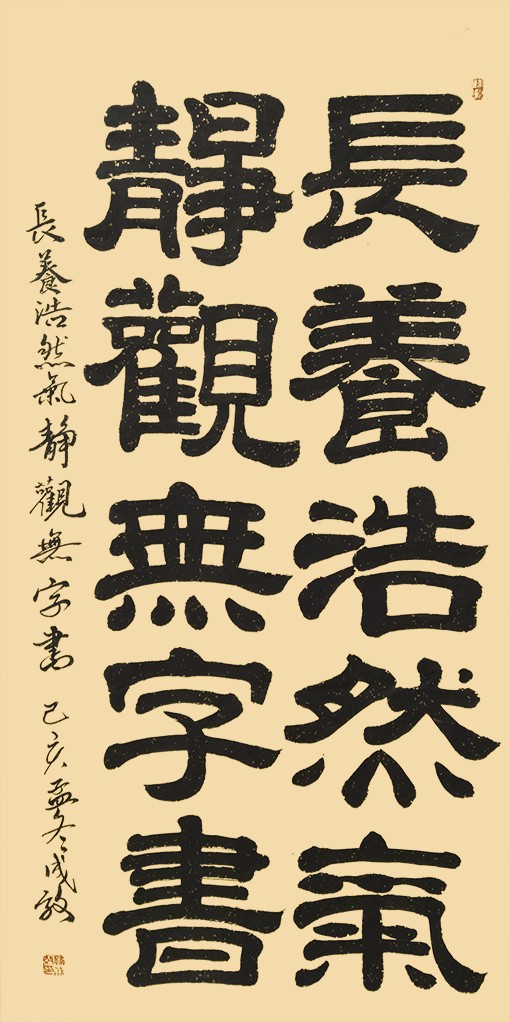 長養浩然氣
靜觀無字書
長養浩然氣靜觀無字書 己亥孟冬 成敏